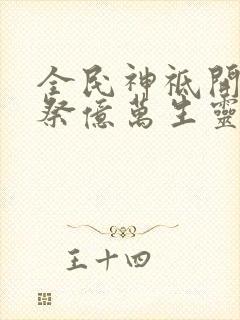 全民神祇開
祭億萬生靈
王十四